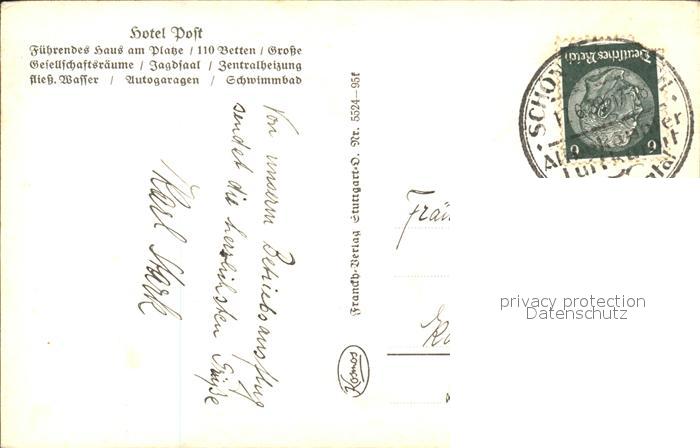 Hotel Post
Führendes Haus am Platze / 110 Betten / Große
Gesellschaftsräume / Jagdsaal / Zentralheizung
fließ. Wasser / Autogaragen / Schwimmbad
Von unserm Betriebsausflug
sendet die herzlichsten Grüße
Karl Stark
Franckh-Verlag Stuttgart-O. Nr. 5524–95f
Kosmos
Deutsches Reich
6 6
SCHÖN
Luftkurort
privacy protection
Datenschutz